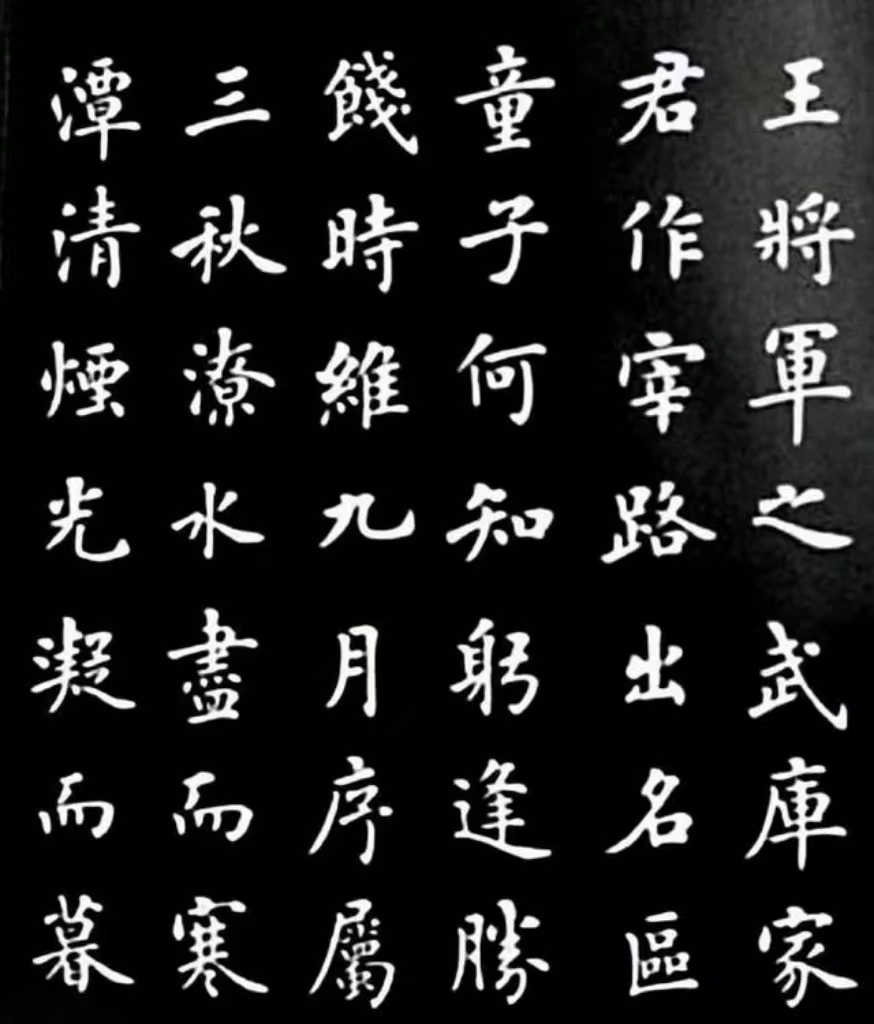 王將軍之武庫家
君作宰路出名區
童子何知躬逢勝
餞時維九月序屬
三秋潦水盡而寒
潭清煙光凝而暮